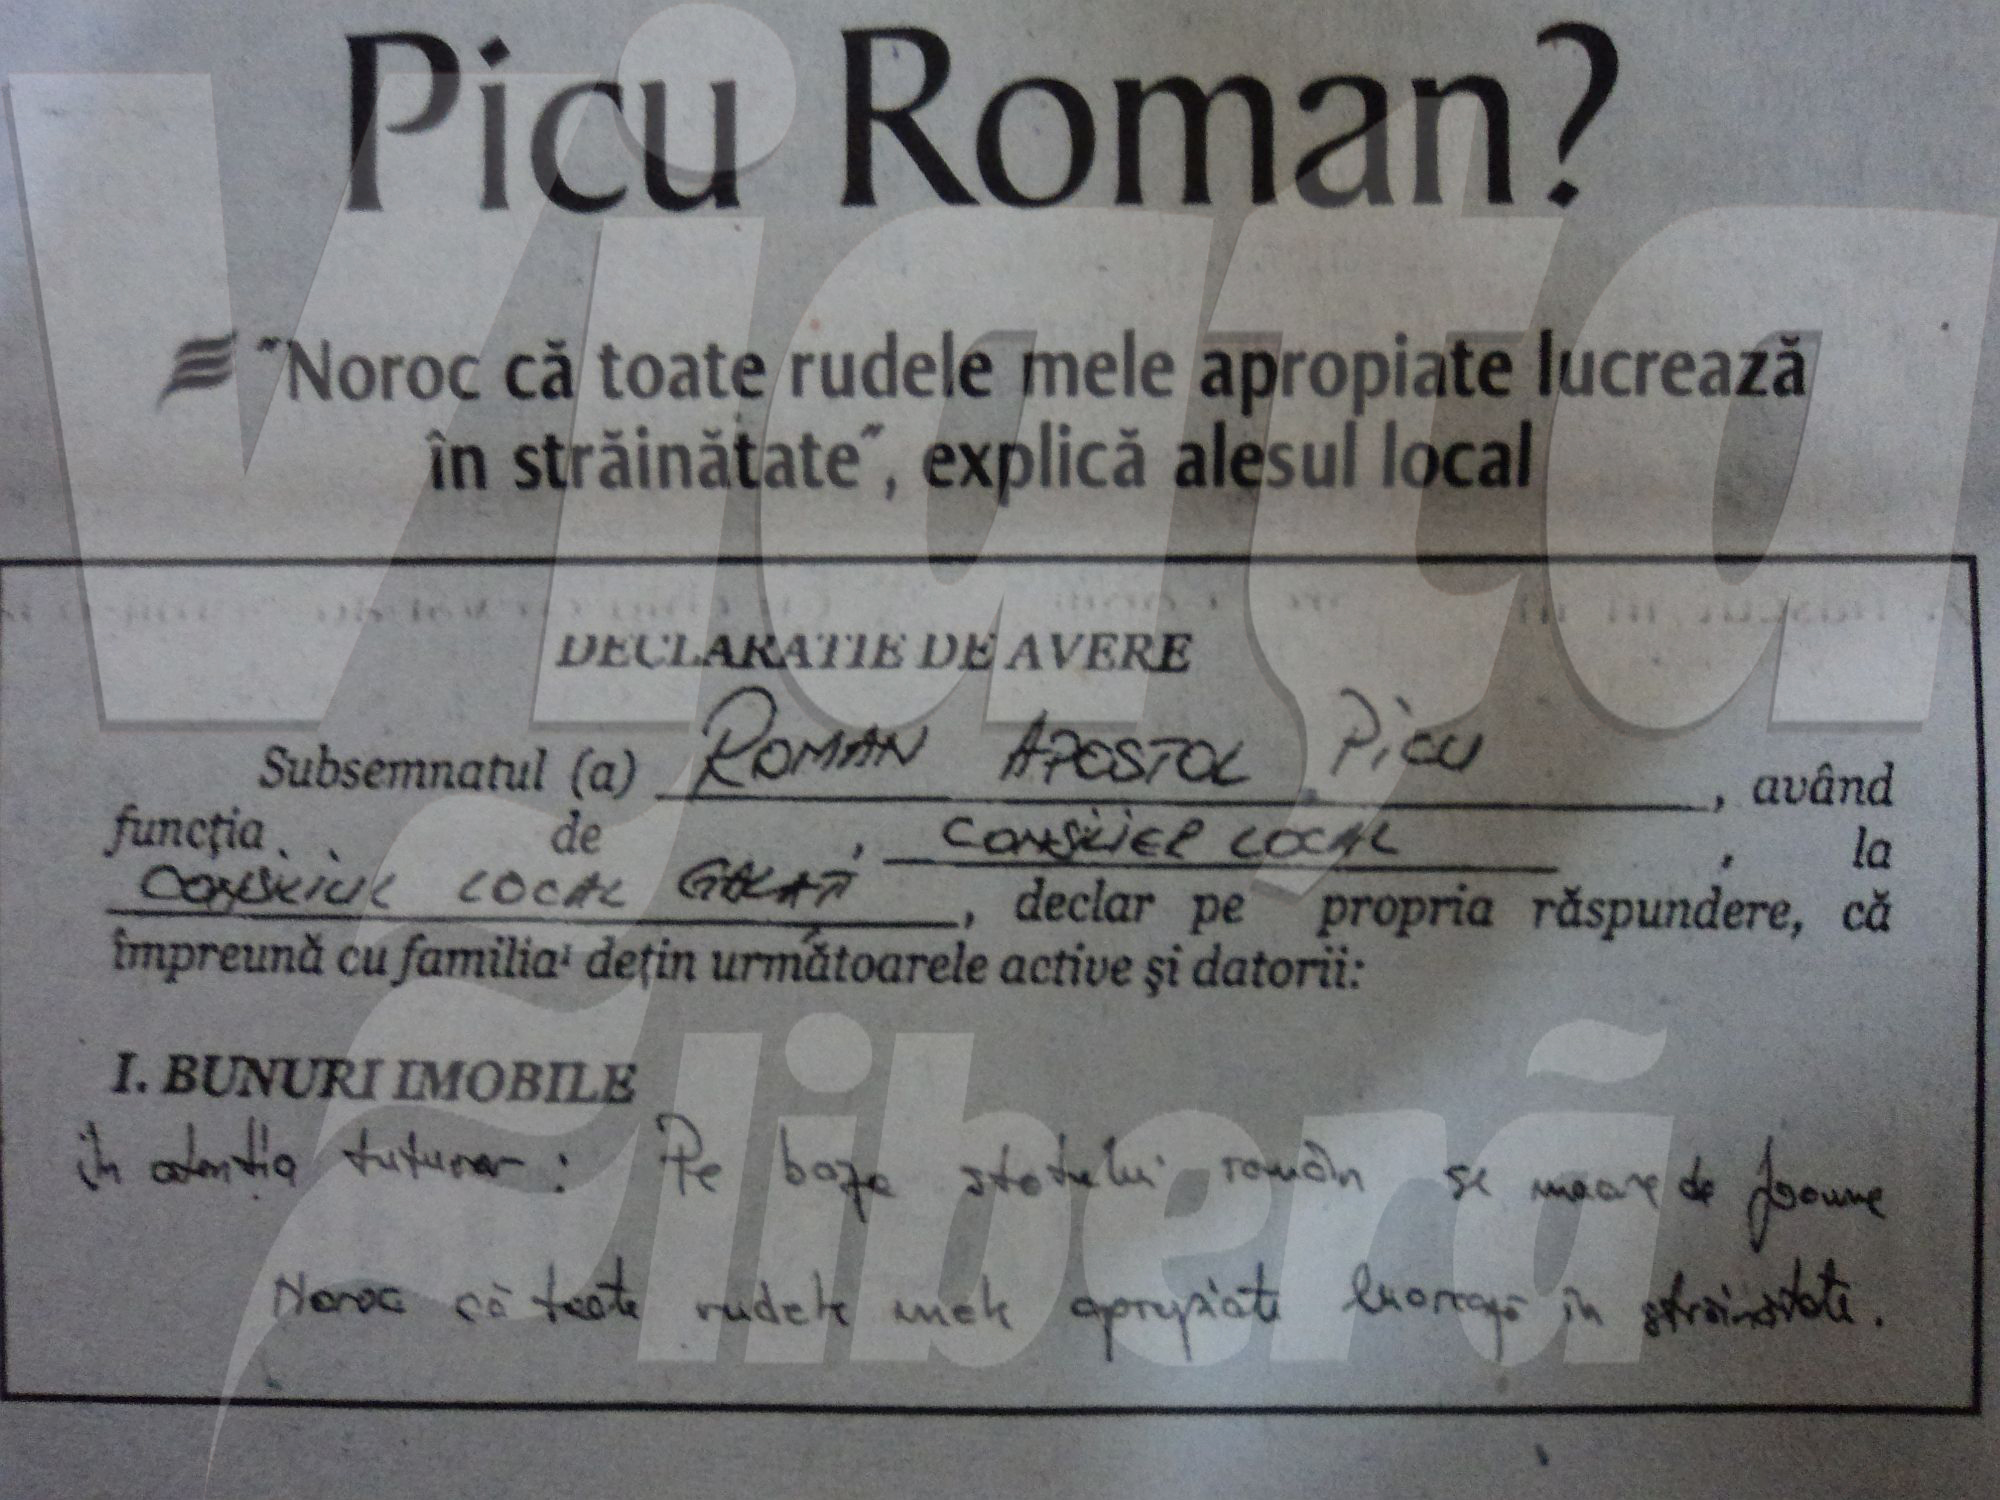 Picu Roman?
"Noroc că toate rudele mele apropiate lucrează
în străinătate", explică alesul local
DECLARATIE DE AVERE
Subsemnatul (a) ROMAN APOSTOL PICU, având
funcția de, CONSILIER LOCAL, la
CONSILIUL LOCAL GALATI, declar pe propria răspundere, că
împreună cu familia¹ dețin următoarele active și datorii:
I. BUNURI IMOBILE
În atenția tuturor: Pe baza statului român se moare de foame
Noroc că toate rudele mele apropiate lucrează în străinătate.
Viața
liberă